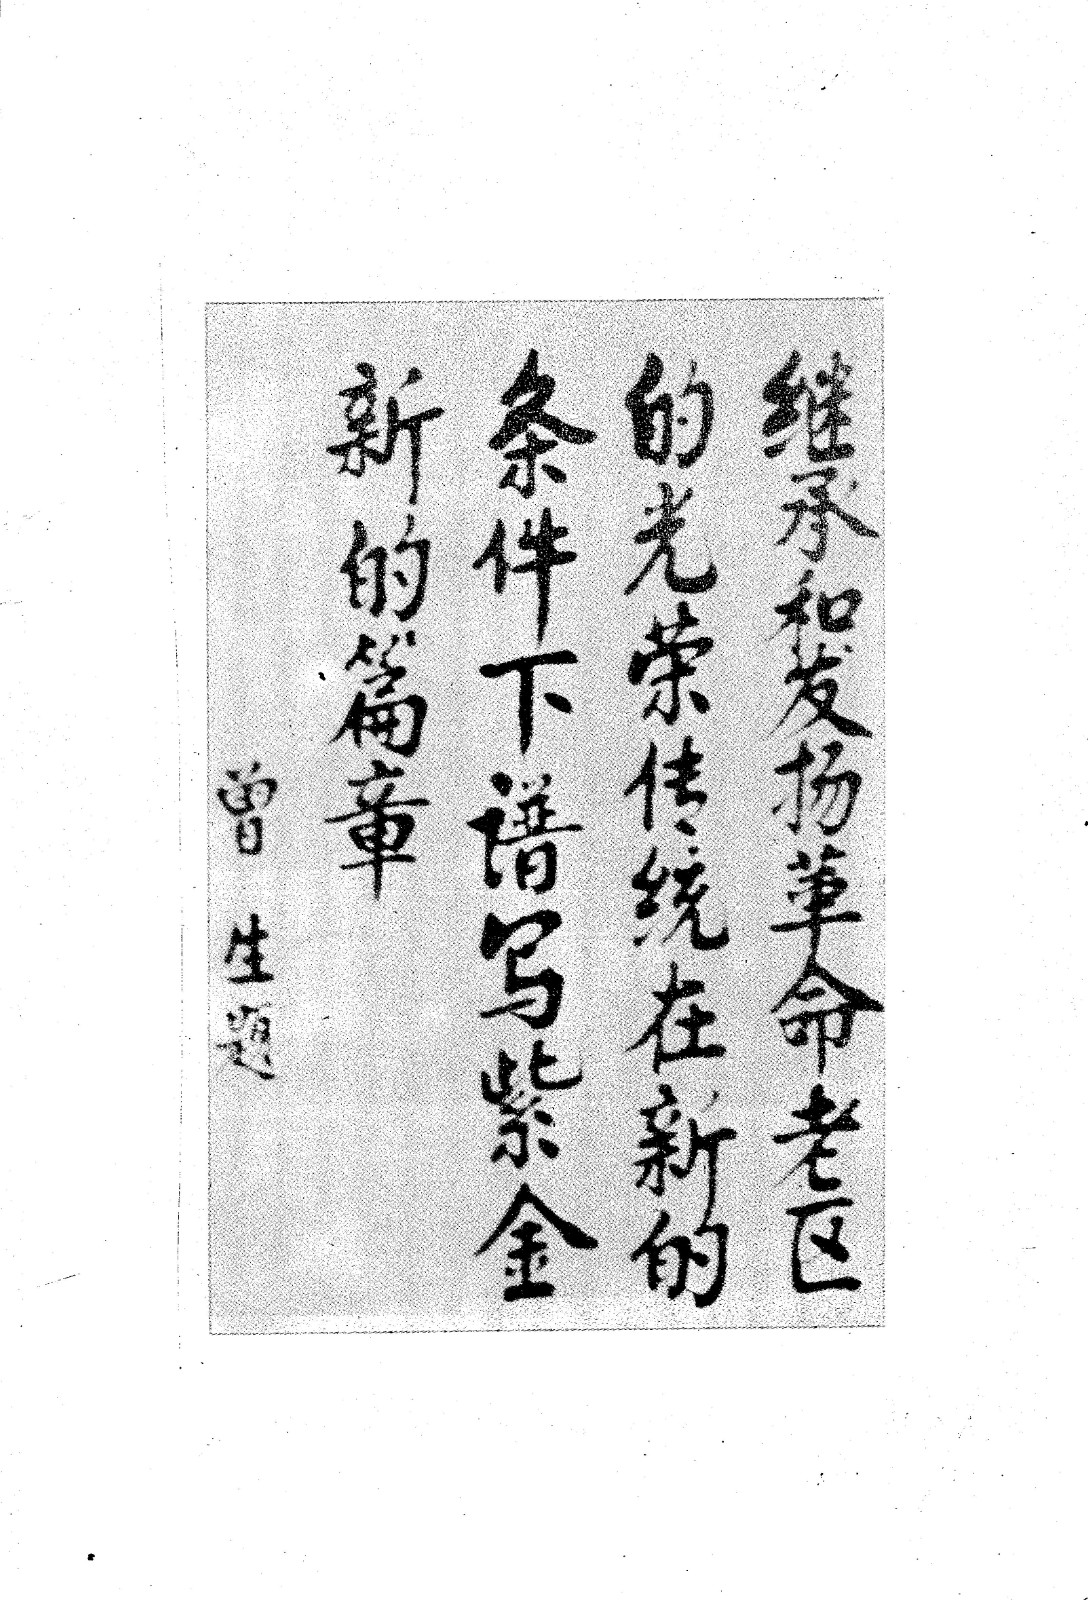 继承和发扬革命老区
的光荣传统在新的
条件下谱写紫金
新的篇章
曾生题